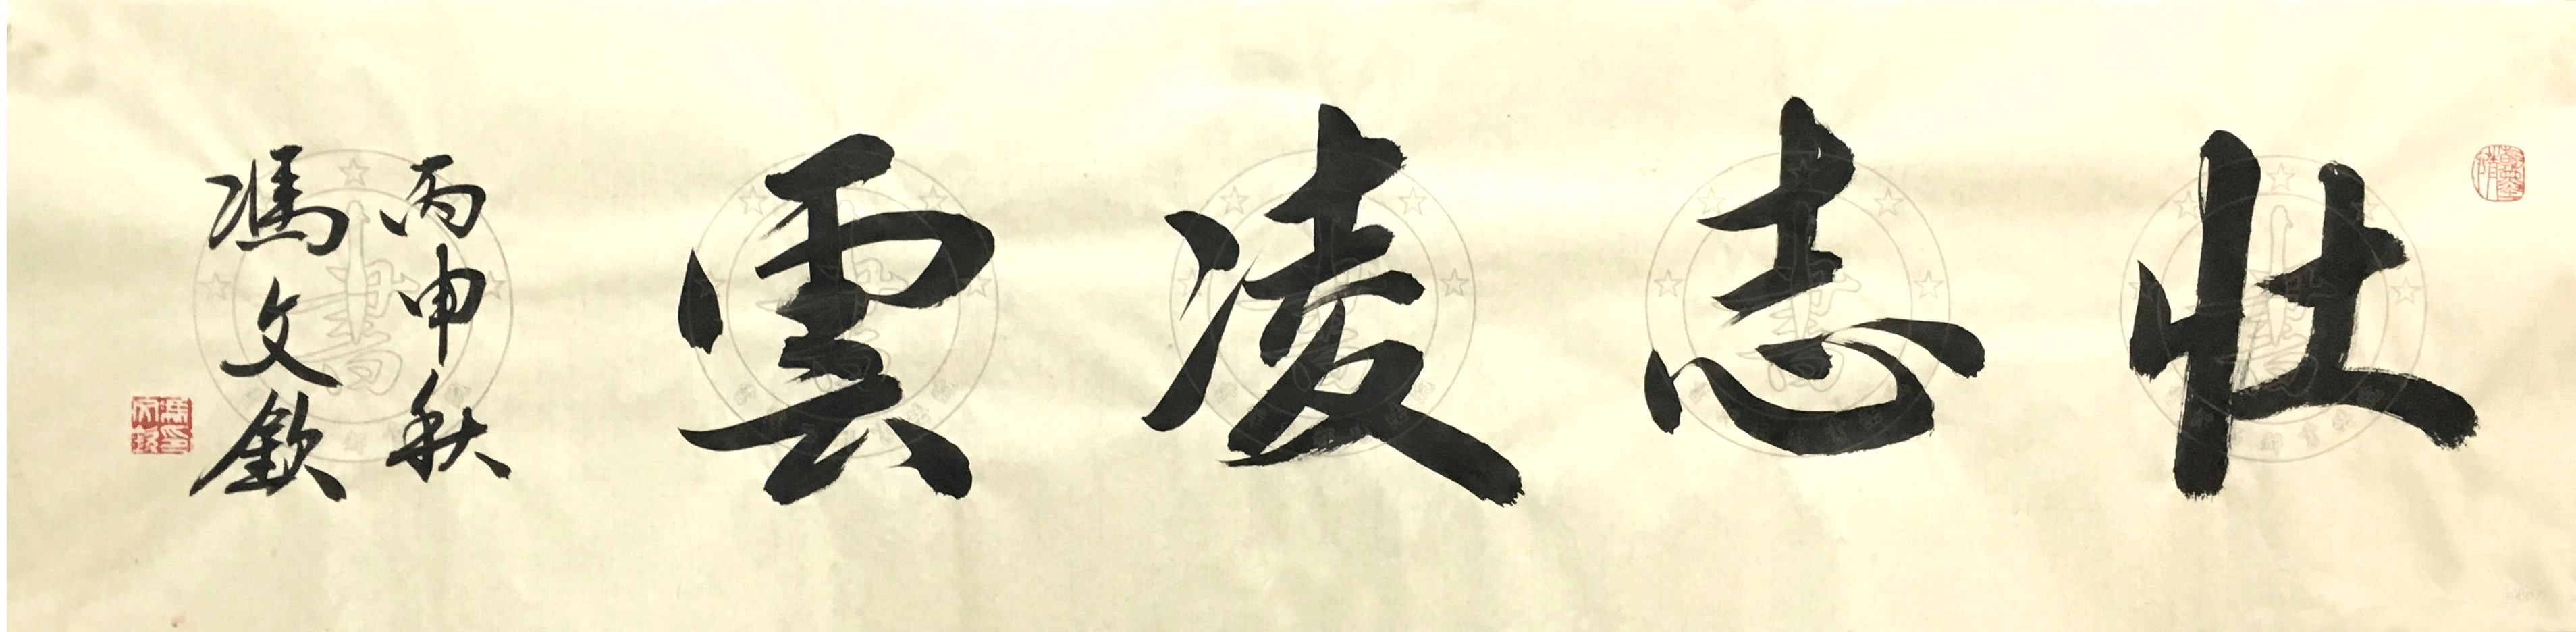 壯志凌雲
丙申秋
馮文欽